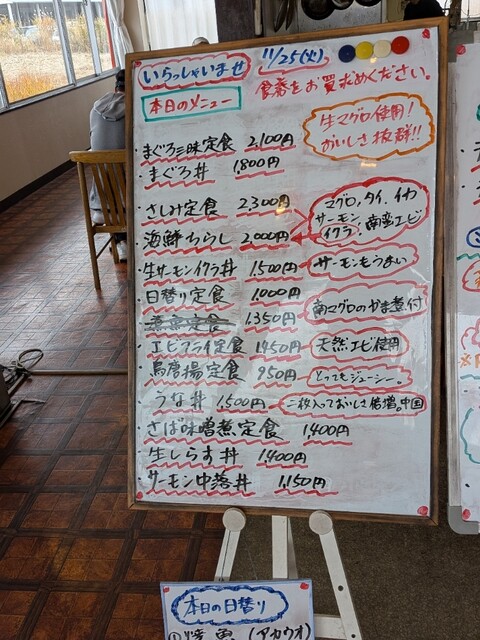 いらっしゃいませ 11/25(火)
食券をお買求めください。
本日のメニュー
生マグロ使用!
おいしさ抜群!!
・まぐろ三昧定食 2,100円
・まぐろ丼 1,800円
・さしみ定食 2,300円
マグロ、タイ、イカ
サーモン
イクラ、南蛮エビ
・海鮮ちらし 2,000円
・生サーモンイクラ丼 1,500円
サーモンもうまい
・日替り定食 1,000円
1,350円
南マグロのかま煮付
・エビフライ定食 1,450円
天然エビ使用
・鳥唐揚定食 950円
とってもジューシー。
うな丼 1,500円
二枚入っておいしさ倍増。中国
・さば味噌煮定食 1,400円
・生しらす丼 1,400円
・サーモン中落丼 1,150円
本日の日替り
①焼魚(アカウオ)